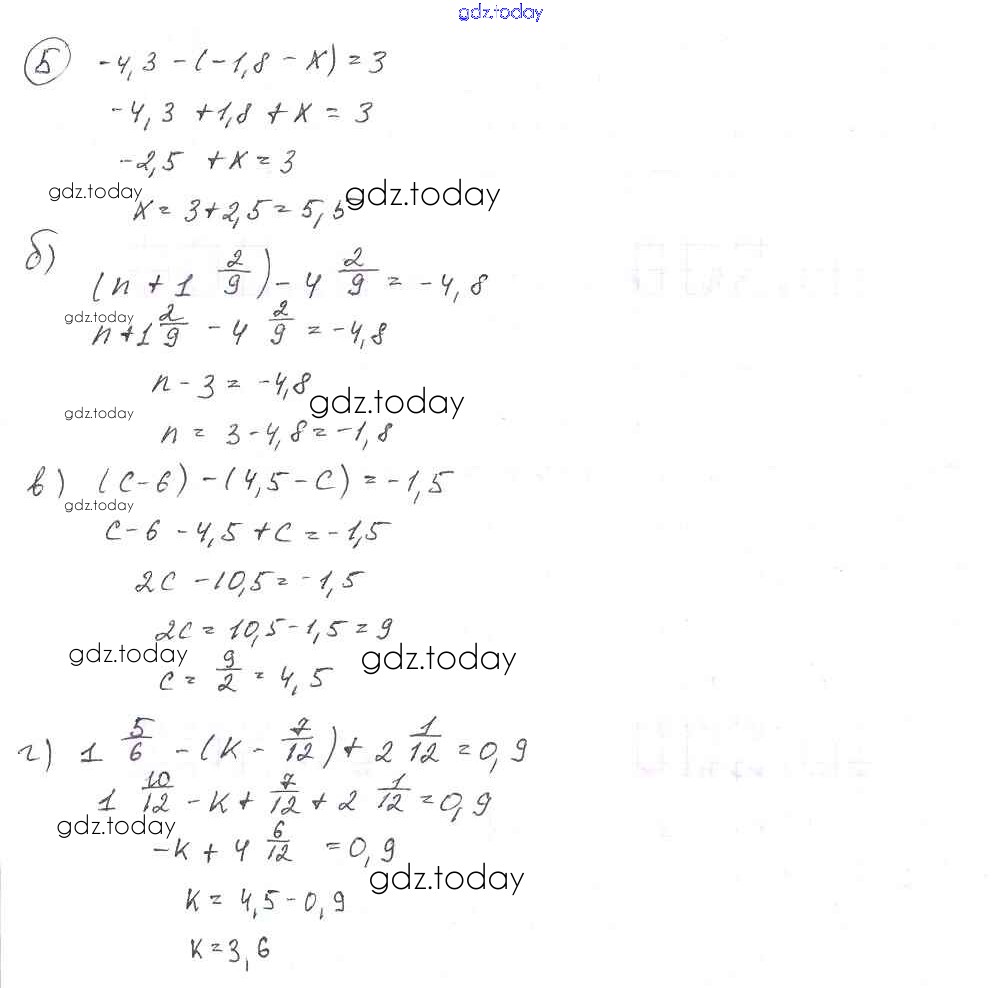 gdz.today
Б -4,3 - (-1,8 - x) = 3
-4,3 + 1,8 + x = 3
-2,5 + x = 3
gdz.today gdz.today
x = 3 + 2,5 = 5,5
б) (n + 1 2/9) - 4 2/9 = -4,8
gdz.today
n + 1 2/9 - 4 2/9 = -4,8
n - 3 = -4,8
gdz.today gdz.today
n = 3 - 4,8 = -1,8
в) (c - 6) - (4,5 - c) = -1,5
gdz.today
c - 6 - 4,5 + c = -1,5
2c - 10,5 = -1,5
2c = 10,5 - 1,5 = 9
gdz.today gdz.today
c = 9/2 = 4,5
г) 1 5/6 - (k - 7/12) + 2 1/12 = 0,9
1 10/12 - k + 7/12 + 2 1/12 = 0,9
gdz.today
-k + 4 6/12 = 0,9
gdz.today
k = 4,5 - 0,9
k = 3,6